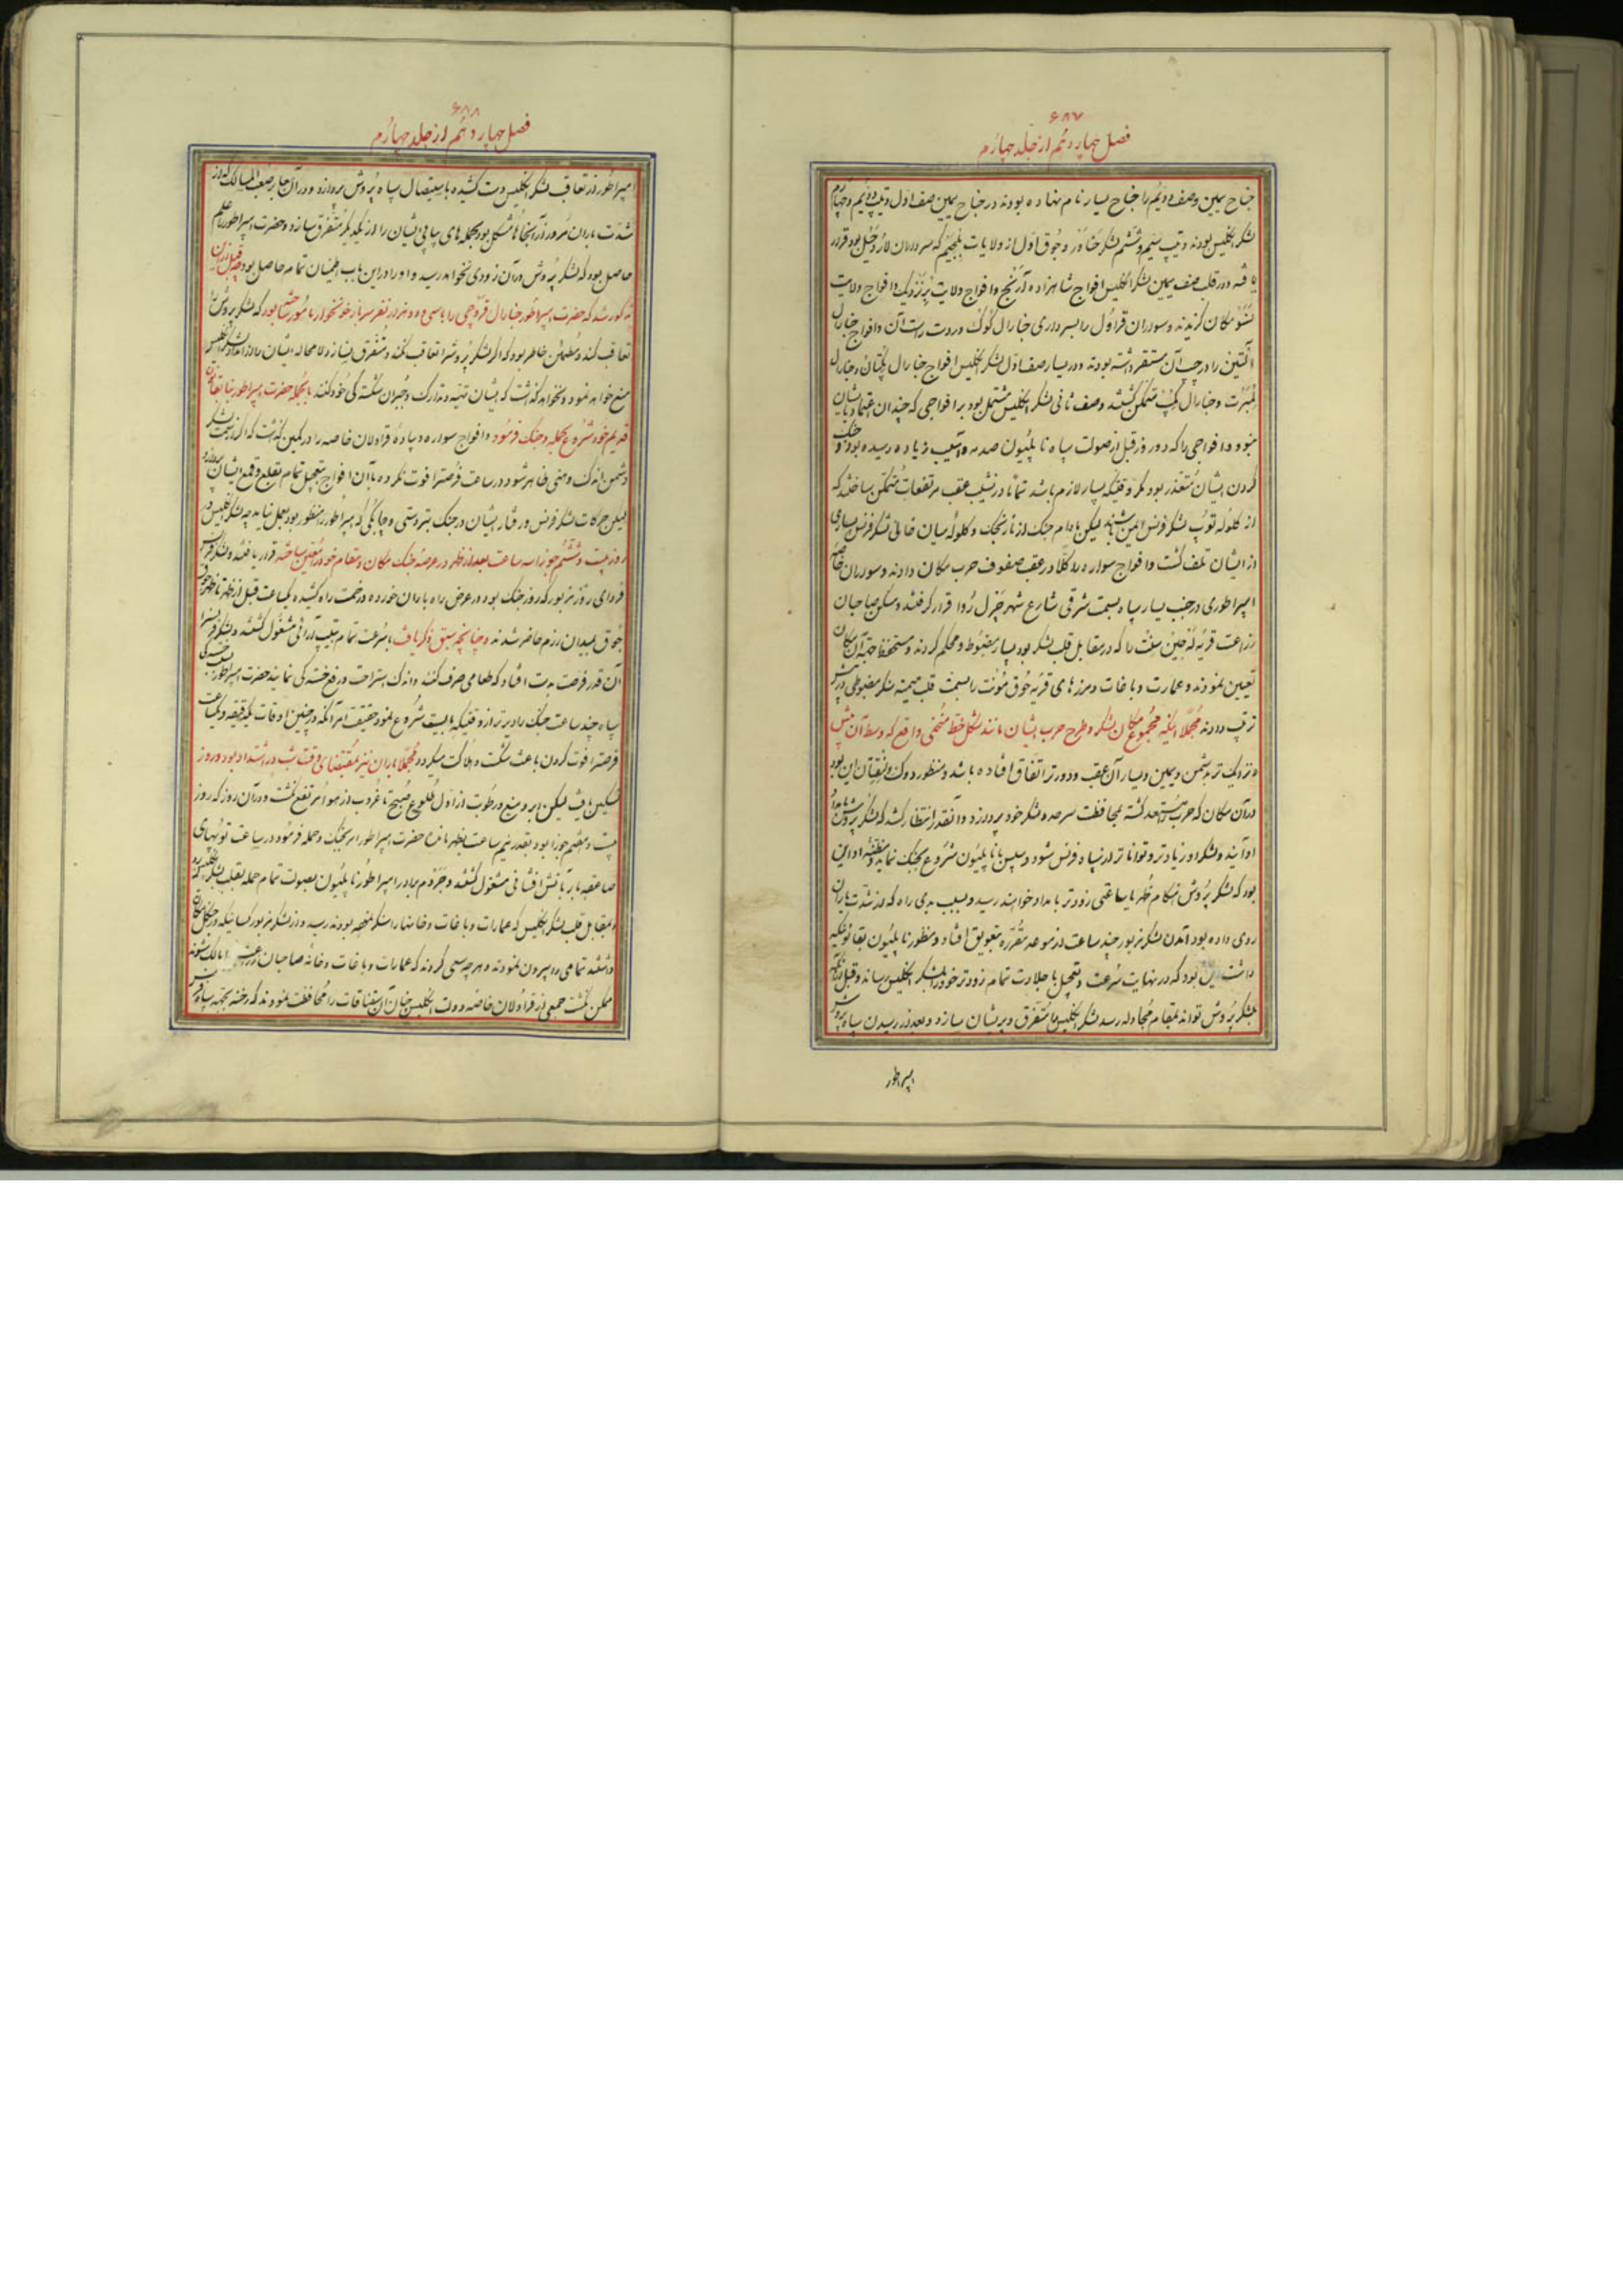 ۶۸۷
فصل چهاردهم از جلد چهارم
جناح یمین وصف دویم را جناح یسار نام نهاده بودند در جناح یمین صف اول تیپ دویم و چهارم
لشکر انکلیس بودند و تیپ سیم و ششم لشکر و جوق اول از ولایات بلجیم که سردارشان بود قرار
یافته و در قلب صف یمین لشکر انکلیس افواج شاهزاده آرنج و افواج ولایت برنزویک و افواج ولایت
نسو مکان کزیدند و سواران قراول را بسرداری جنارال کوک در دست راست آن و افواج جنارال
التین را در چپ آن مستقر داشته بودند و در یسار صف اول لشکر انکلیس افواج جنارال پکتان و جنارال
لمبرت و جنارال کمپت متمکن کشتند وصف ثانی لشکر انکلیس مشتمل بود بر افواجی که چندان اعتماد بایشان
نبود و افواجی را که دو روز قبل از صولت سپاه ناپلیون صدمه و آسیب زیاد رسیده بود و جنک
کردن ایشان متعذر بود مکر وقتیکه بسیار لازم باشد تماما در نشیب عقب مرتفعات متمکن ساختند که
از کلوله توپ لشکر فرنس ایمن باشند لیکن مادام جنک از نارنجک و کلوله میان خالی لشکر فرنس بسیاری
از ایشان تلف کشت و افواج سواره کلا در عقب صفوف حرب مکان دادند و سواران خاصه
امپراطوری در جنب یسار سپاه بسمت شرقی شارع شهر قرار کرفتند و مسکن صاحبان
زراعت قریه را که در مقابل قلب لشکر بود بسیار مضبوط و محکم کردند و مستحفظ بجهة آن مکان
تعیین نمودند و عمارت و باغات و مرزهای قریه هوق مونت را بسمت قلب میمنه سنکر مضبوطی
ترتیب دادند مجملا اینکه مجموع مکان لشکر و طرح حرب ایشان مانند شکل خط منحنی واقع که وسط آن پیش
و نزدیک تر بدشمن و یمین و یسار آن عقب و دورتر اتفاق افتاده باشد و منظور دوک ولنقتان این بود
در آن مکان که حرب مستعد کشته بمحافظت سرحد و لشکر خود پردازد و آنقدر انتظار کشد که لشکر پروش بامداد
او آیند و لشکر او زیادتر و تواناتر از سپاه فرنس شود و سپس با ناپلیون شروع بجنک نماید و مظنه او این
بود که لشکر پروش هنکام ظهر یا ساعتی زودتر بامداد خواهند رسید و بسبب بدی راه که از شدت باران
روی داده بود آمدن لشکر مزبور چند ساعت از موعد مقرره بتعویق افتاد و منظور ناپلیون بقانونیکه
داشت این بود که در نهایت سرعت و تعجیل با جلادت تمام زودتر خود را بلشکر انکلیس رساند و قبل از آنکه
لشکر پروش تواند بمقام مجادله رسد لشکر انکلیس را متفرق و پریشان سازد و بعد از رسیدن سپاه پروش
امپراطور
۶۸۸
فصل چهاردهم از جلد چهارم
امپراطور از تعاقب لشکر انکلیس دست کشیده باستیصال سپاه پروش پردازد و در آن جا بر صعب المسالک که از
شدت باران مرور از آنجاها مشکل بود بحمله های پیاپی ایشان را از یکدیکر متفرق سازد و حضرت امپراطور را علم
حاصل بود که لشکر پروش در آن زودی نخواهد رسید و او را در این باب اطمینان تمام حاصل بود چه قبل از این
مذکور شد که حضرت امپراطور جنارال قروچی را با سی و دو هزار نفر سرباز خونخوار مامور داشته بود که لشکر پروش را
تعاقب کند و مطمئن خاطر بود که اکر لشکر پروش را تعاقب نکند و متفرق نسازد لامحاله ایشان را از امداد لشکر انکلیس
منع خواهد نمود و نخواهد کذاشت که ایشان تهیه و تدارک و جبران شکستکی خود کنند بالجمله حضرت امپراطور بنا بقانون
قدیم خود شروع بحمله و جنک فرمود و افواج سواره و پیاده قراولان خاصه را در کمین کذاشت که اکر از سمت لشکر
دشمن اندک وهنی ظاهر شود در ساعت فرصت را فوت نکرده با آن افواج بتعجیل تمام بقلع و قمع ایشان پردازد
لیکن حرکات لشکر فرنس و رفتار ایشان در جنک بتردستی و چابکی که امپراطور را منظور بود بعمل نیامد چه لشکر انکلیس در
روز بیست و ششم جوزا سه ساعت بعد از ظهر در عرصه جنک مکان و مقام خود را معین ساخته قرار یافتند و لشکر فرنس
فردای روز مزبور که روز جنک بود و در عرض راه باران خورده و زحمت راه کشیده یکساعت قبل از ظهر تا ظهر جوق
جوق بمیدان رزم حاضر شدند و چنانچه سبق ذکر یافت بسرعت تمام بتیپ آرائی مشغول کشتند و لشکر فرنس را
آن قدر فرصت بدست افتاد که طعامی صرف کنند و اندک استراحت و رفع خستکی نمایند حضرت امپراطور بسبب خستکی
سپاه چند ساعت جنک را دیرتر از وقتیکه بایست شروع نمود حقیقت امر آنکه در چنین اوقات یکدقیقه و یکساعت
فرصت را فوت کردن باعث شکست و هلاکت میکردد مجملا باران نیز بمقتضای وقت شب در اشتداد بود و روز
تسکین یافت لیکن ابر و میغ و رطوبت از اول طلوع صبح تا غروب از هوا مرتفع نکشت و در آن روز که روز
بیست و هفتم جوزا بود بقدر نیم ساعت بظهر مانده حضرت امپراطور امر بجنک و حمله فرمود در ساعت توپهای
صاعقه بار بآتش افشانی مشغول کشتند و جزوم برادر امپراطور ناپلیون بصولت تمام حمله بقلب لشکر انکلیس
و بمقابل قلب لشکر انکلیس که عمارات و باغات و خانهارا سنکر نموده بودند رسید و از لشکر مزبور کسانیکه در جنکل مکان
داشتند تمامی را بیرون نمودند و هر چه سعی کردند که عمارات و باغات و خانه صاحبان زراعت را مالک شوند
ممکن نکشت جمعی از قراولان خاصه دولت انکلیس چنان آن سقناقات را محافظت نمودند که رخنه بجهة سپاه فرنس